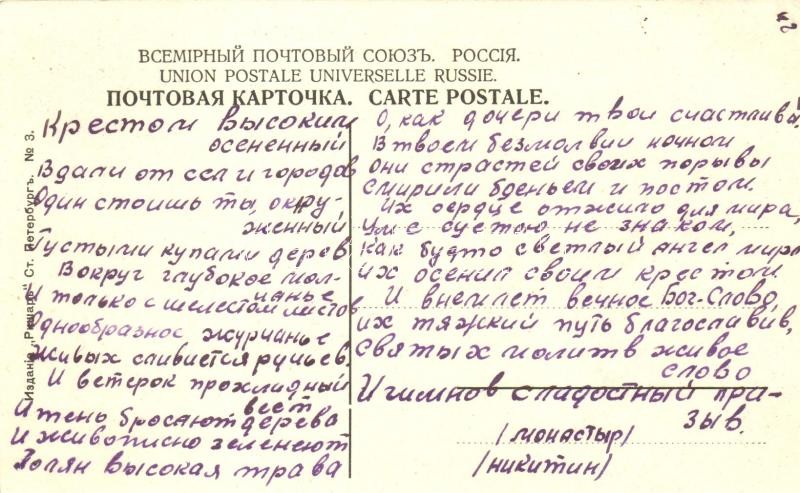 ВСЕМІРНЫЙ ПОЧТОВЫЙ СОЮЗЪ. РОССІЯ.
UNION POSTALE UNIVERSELLE RUSSIE.
ПОЧТОВАЯ КАРТОЧКА. CARTE POSTALE.
Изданіе „Ришаръ" Ст. Петербургъ. № 3.
Крестом высоким
осененный
Вдали от сел и городов
Один стоишь ты, окру-
женный
Густыми купами дерев
Вокруг глубокое мол-
чанье
И только с шелестом листов
Однообразное журчанье
Живых сливается ручьев,
И ветерок прохладный
веет
И тень бросают дерева
И живописно зеленеют
Полян высокая трава
О, как дочери твои счастливы!
В твоем безмолвии ночном
Они страстей своих порывы
Смирили бденьем и постом.
Их сердце отжило для мира,
Ум с суетою не знаком,
Как будто светлый ангел мира
Их осенил своим крестом
И внемлет вечное Бог-Слово,
Их тяжкий путь благославив,
Святых молитв живое
слово
И гимнов сладостный при-
зыв.
/монастыр/
/никитин/